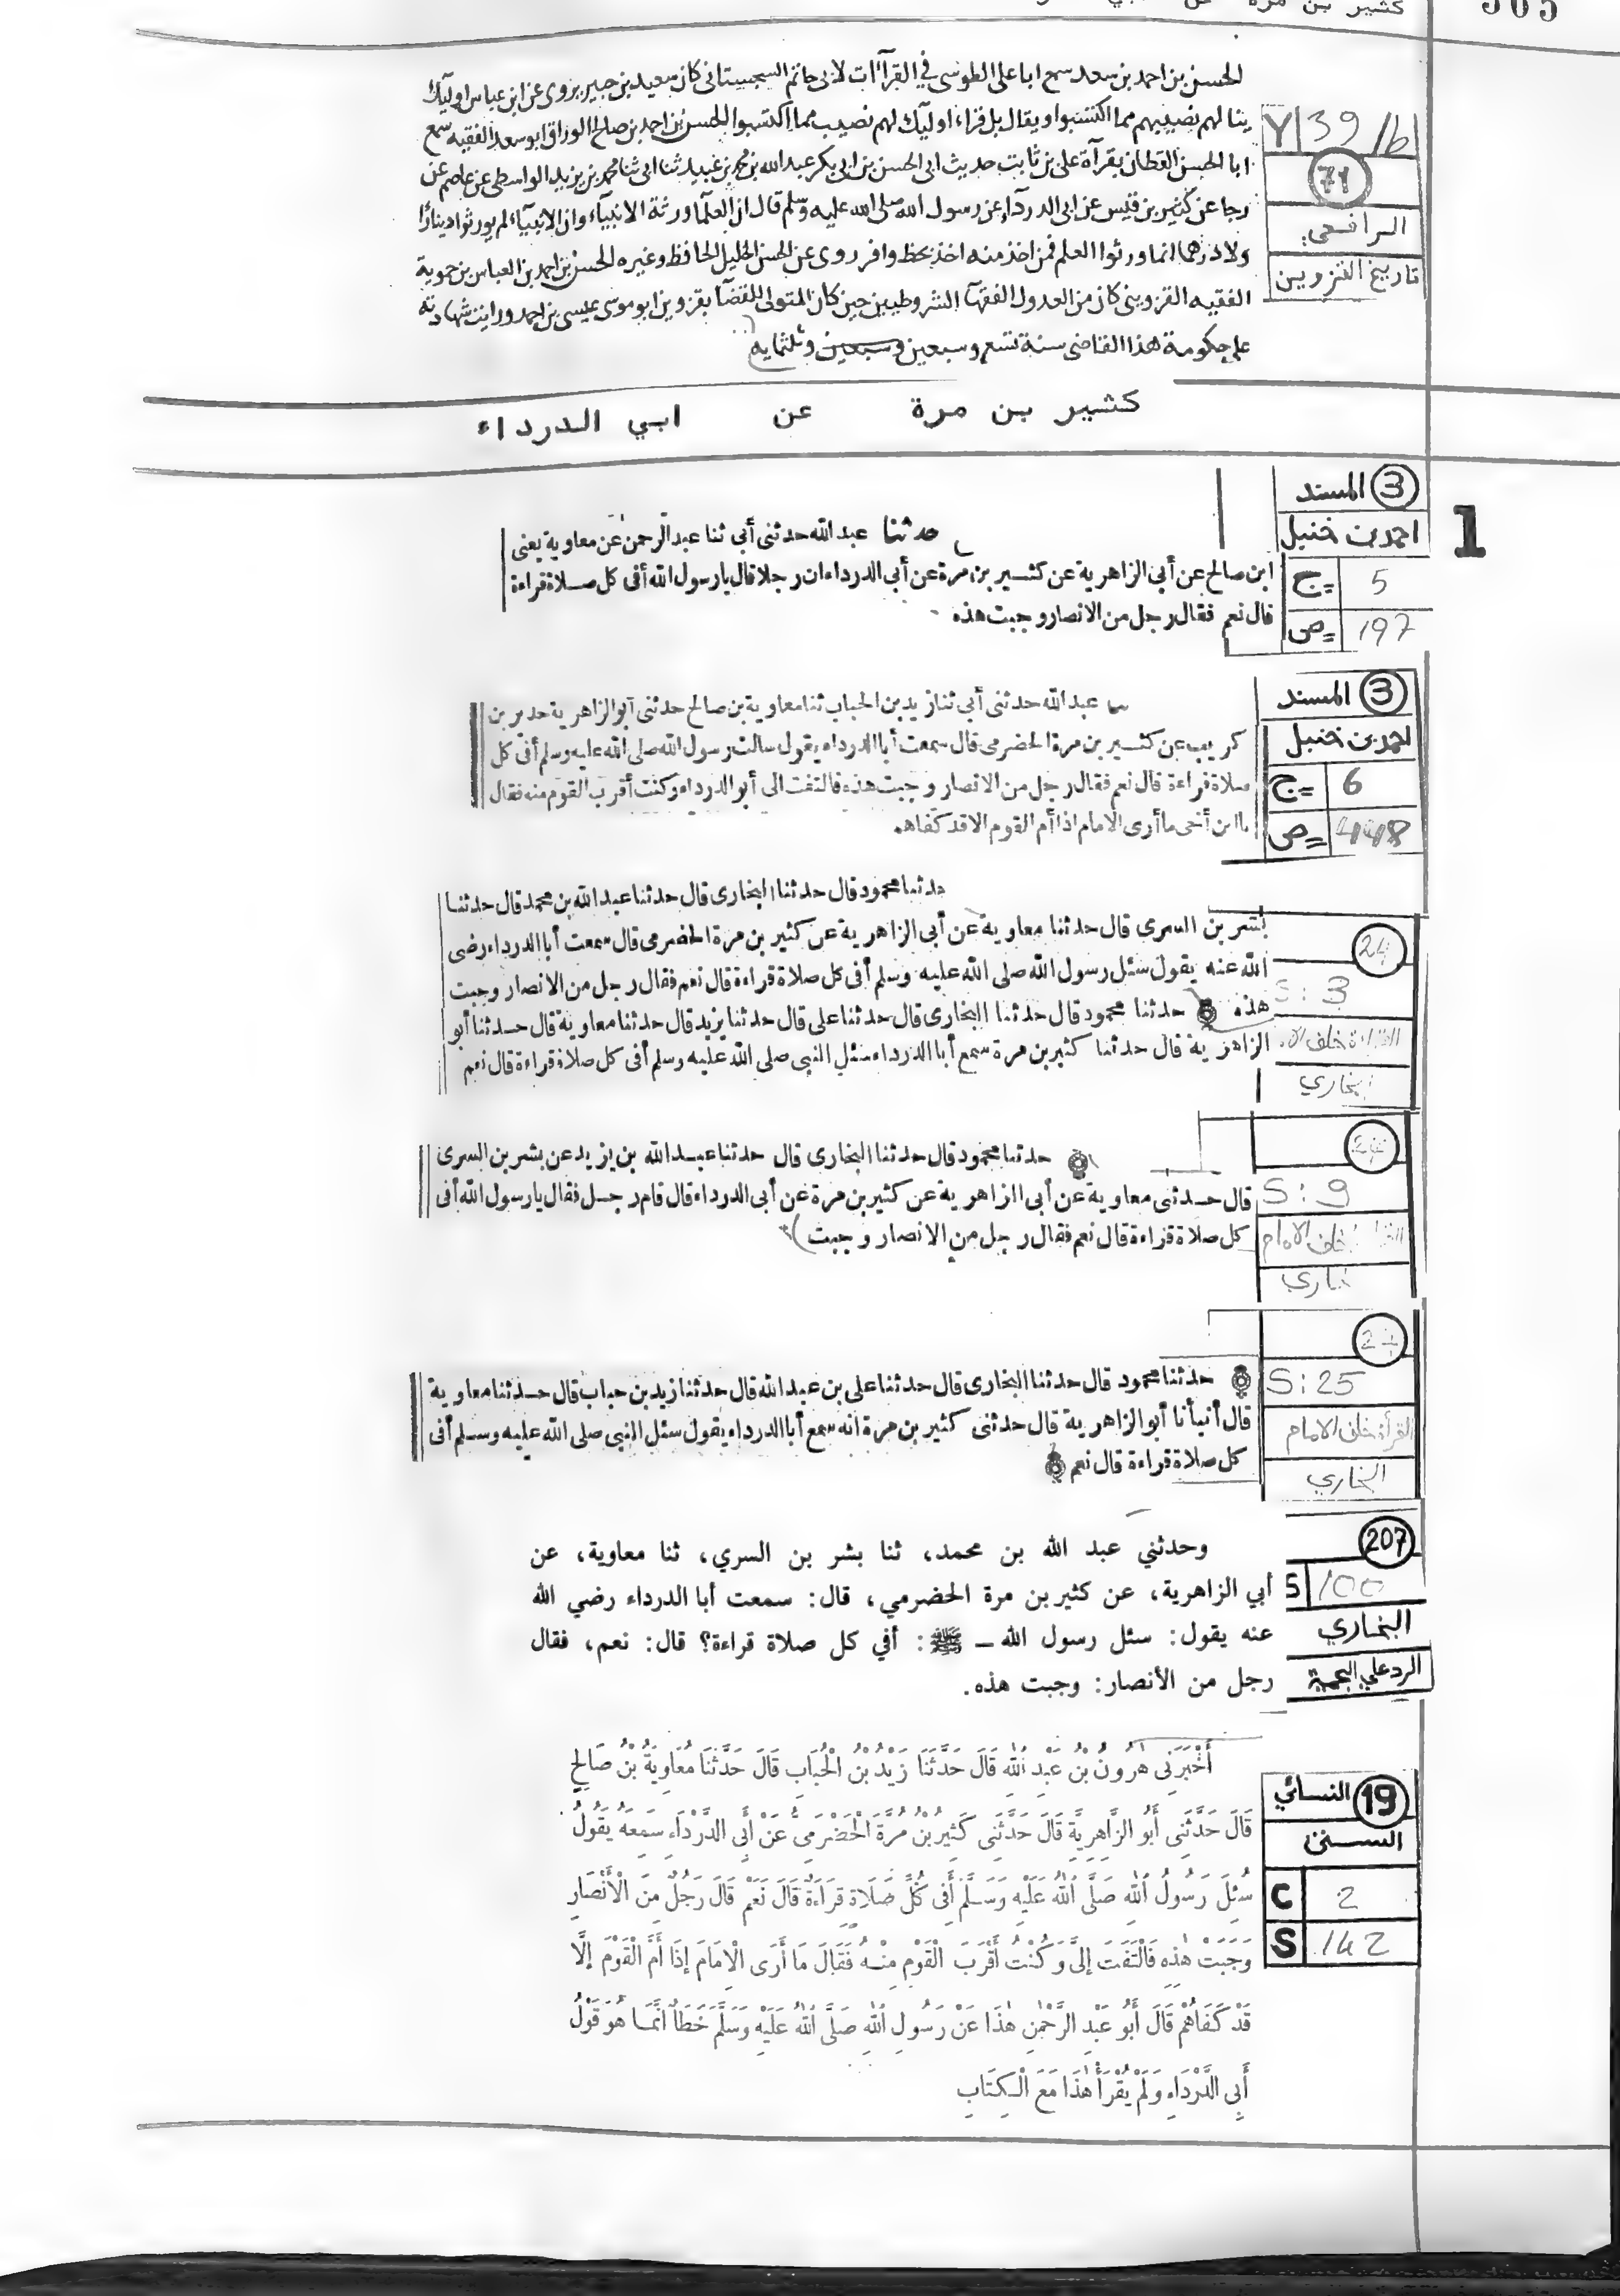 كثير بن مرة عن
الحسن بن احمد بن سعد سمع ابا على الطوسى فى القراآت لابى حاتم السجستانى كان سعيد بن جبير يروى عن ابن عباس اوليك
ينالهم نصيبهم مما اكتسبوا ويقال بل قراء اوليك لهم نصيب مما اكتسبوا الحسن بن احمد بن صالح الوراق ابو سعد الفقيه سمع
ابا الحسن القطان بقرآة على بن ثابت حديث ابى الحسن بن ابى بكر عبد الله بن محمد بن عبيد ثنا ابى ثنا محمد بن يزيد الواسطى عن عاصم عن
رجا عن كثير بن قيس عن ابى الدرداء عن رسول الله صلى الله عليه وسلم قال ان العلما ورثة الانبياء وان الانبيآء لم يورثوا دينارا
ولا درهما انما ورثوا العلم فمن اخذ منه اخذ بحظ وافر روى عن الحسن الخليل الحافظ وغيره الحسن بن احمد بن العباس بن حموية
الفقيه القزوينى كان من العدول الفقهآ الشروطيين حين كان المتولى للقضآ بقزوين ابو موسى عيسى بن احمد ورايت شهادته
على حكومة هذا القاضى سنة تسع وسبعين وسبعين وثلثمايه
Y 39/b
71
الرافعي
تاريخ القزوين
كثير بن مرة عن ابي الدرداء
1
3 المسند
احمد بن حنبل
ج= 5
ص= 197
حدثنا عبد الله حدثنى أبى ثنا عبد الرحمن عن معاوية يعنى
ابن صالح عن أبى الزاهرية عن كثير بن مرة عن أبى الدرداء ان رجلا قال يا رسول الله أفى كل صلاة قراءة
قال نعم فقال رجل من الانصار وجبت هذه
3 المسند
احمد بن حنبل
ج= 6
ص= 448
عبد الله حدثنى أبى ثنا زيد بن الحباب ثنا معاوية بن صالح حدثنى أبو الزاهرية حدير بن
كريب عن كثير بن مرة الحضرمى قال سمعت أبا الدرداء يقول سالت رسول الله صلى الله عليه وسلم أفى كل
صلاة قراءة قال نعم فقال رجل من الانصار وجبت هذه فالتفت الى أبو الدرداء وكنت أقرب القوم منه فقال
يا ابن أخى ما أرى الامام اذا أم القوم الا قد كفاهم
24
S: 3
القراءة خلف الا
البخاري
حدثنا محمود قال حدثنا البخارى قال حدثنا عبد الله بن محمد قال حدثنا
بشر بن السرى قال حدثنا معاوية عن أبى الزاهرية عن كثير بن مرة الحضرمى قال سمعت أبا الدرداء رضى
الله عنه يقول سئل رسول الله صلى الله عليه وسلم أفى كل صلاة قراءة قال نعم فقال رجل من الانصار وجبت
هذه حدثنا محمود قال حدثنا البخارى قال حدثنا على قال حدثنا يزيد قال حدثنا معاوية قال حدثنا أبو
الزاهرية قال حدثنا كثير بن مرة سمع أبا الدرداء سئل النبى صلى الله عليه وسلم أفى كل صلاة قراءة قال نعم
24
S: 9
خلف الامام
بخاري
حدثنا محمود قال حدثنا البخارى قال حدثنا عبد الله بن يزيد عن بشر بن السرى
قال حدثنى معاوية عن أبى الزاهرية عن كثير بن مرة عن أبى الدرداء قال قام رجل فقال يا رسول الله أفى
كل صلاة قراءة قال نعم فقال رجل من الانصار وجبت
24
S: 25
القرأة خلف الامام
البخاري
حدثنا محمود قال حدثنا البخارى قال حدثنا على بن عبد الله قال حدثنا زيد بن حباب قال حدثنا معاوية
قال أنبأنا أبو الزاهرية قال حدثنى كثير بن مرة انه سمع أبا الدرداء يقول سئل النبى صلى الله عليه وسلم أفى
كل صلاة قراءة قال نعم
207
S 100
البخاري
الرد علي الجهمية
وحدثني عبد الله بن محمد، ثنا بشر بن السري، ثنا معاوية، عن
أبي الزاهرية، عن كثير بن مرة الحضرمي، قال: سمعت أبا الدرداء رضي الله
عنه يقول: سئل رسول الله ـ ﷺ : أفي كل صلاة قراءة؟ قال: نعم، فقال
رجل من الأنصار: وجبت هذه.
19 النسائي
السنن
C 2
S 142
أَخْبَرَنِى هٰرُونُ بْنُ عَبْدِ اللهِ قَالَ حَدَّثَنَا زَيْدُ بْنُ الْحُبَابِ قَالَ حَدَّثَنَا مُعَاوِيَةُ بْنُ صَالِحٍ
قَالَ حَدَّثَنِى أَبُو الزَّاهِرِيَّةِ قَالَ حَدَّثَنِى كَثِيرُ بْنُ مُرَّةَ الْحَضْرَمِىُّ عَنْ أَبِى الدَّرْدَاءِ سَمِعَهُ يَقُولُ
سُئِلَ رَسُولُ اللهِ صَلَّى اللهُ عَلَيْهِ وَسَلَّمَ أَفِى كُلِّ صَلَاةٍ قِرَاءَةٌ قَالَ نَعَمْ قَالَ رَجُلٌ مِنَ الْأَنْصَارِ
وَجَبَتْ هٰذِهِ فَالْتَفَتَ إِلَىَّ وَكُنْتُ أَقْرَبَ الْقَوْمِ مِنْهُ فَقَالَ مَا أَرَى الْإِمَامَ إِذَا أَمَّ الْقَوْمَ إِلَّا
قَدْ كَفَاهُمْ قَالَ أَبُو عَبْدِ الرَّحْمٰنِ هٰذَا عَنْ رَسُولِ اللهِ صَلَّى اللهُ عَلَيْهِ وَسَلَّمَ خَطَأٌ انَّمَا هُوَ قَوْلُ
أَبِى الدَّرْدَاءِ وَلَمْ يُقْرَأْ هٰذَا مَعَ الْكِتَابِ